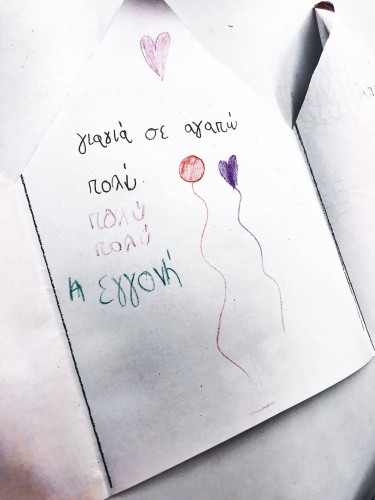 γιαγιά σε αγαπώ
πολύ
πολύ
πολύ
Η εγγονή